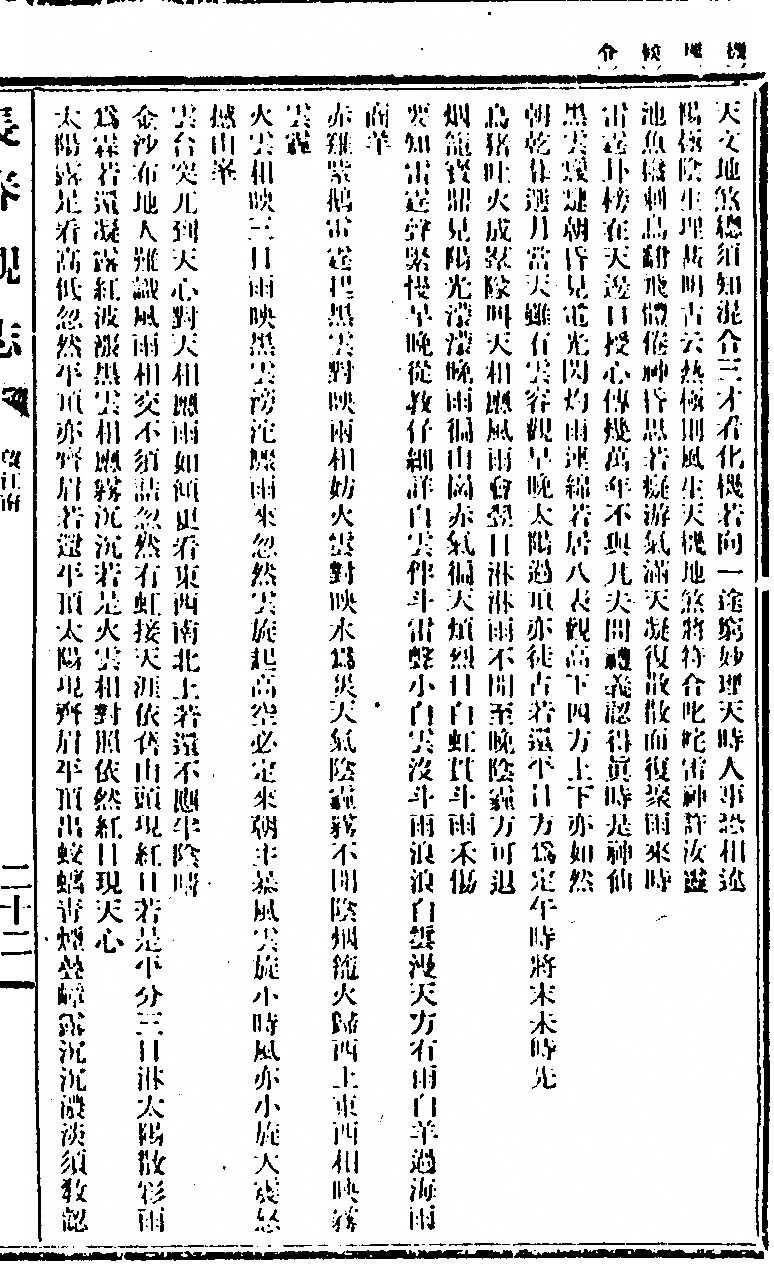 天文地煞總須知混合三才看化機若向一途窮妙理天時人事恐相違
陽極陰生理甚明古云熱極則風生天機地煞將符合叱咤雷神許汝靈
池魚撥剌鳥翻飛體倦神昏思若癡游氣滿天凝復散散而復聚雨來時
雷霆卦榜在天邊口授心傳幾萬年不與凡夫閒議認得真時是神仙
黑雲靉靆朝昏見電光閃灼雨連綿若居八表觀高下四方上下亦如然
朝乾暮遇月當天雖有雲容觀早晚太陽過頂亦徒占若還平日方為定午時將末未時先
烏豬吐火成羣隊叫天相應風雨會翌日淋淋雨不開至晚陰霾方可退
烟籠寶鼎見陽光濛濛晚雨徧山岡赤氣徧天煩烈日白虹貫斗雨禾傷
要知雷霆聲緊慢早晚從教仔細詳白雲伴斗雷聲小白雲沒斗雨浪浪白雲漫天方有雨白羊過海雨
商羊
赤雞紫鵝雷霆起黑雲對映兩相妨火雲對映水為災天氣陰霾霧不開陰烟籠火歸西上東西相映霧
雲霾
火雲相映三日雨映黑雲滂沱驟雨來忽然雲旋起高空必定來朝主暴風雲旋小時風亦小旋大震怒
撼山峯
雲台突兀到天心對天相應雨如傾更看東西南北上若還不應半陰晴
金沙布地人難識風雨相交不須詰忽然有虹接天涯依舊山頭現紅日若是平分三日淋太陽散彩雨
為霖若還凝露紅波漲黑雲相應霧沉沉若是火雲相對照依然紅日現天心
太陽露足看高低忽然平頂亦齊眉若還平頂太陽現齊眉平頂出蛟螭青煙疊嶂露沉沉濃淡須教認
長春觀志
二十二